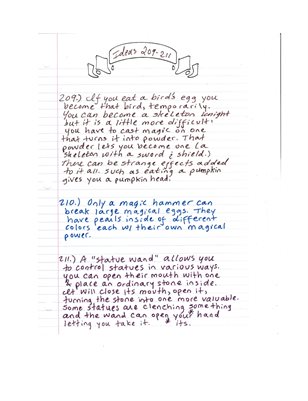 Ideas 209-211
209.) If you eat a bird's egg you
become that bird, temporarily.
You can become a skeleton knight
but it is a little more difficult:
you have to cast magic on one
that turns it into powder. That
powder lets you become one (a
skeleton with a sword & shield.)
There can be strange effects added
to it all. Such as eating a pumpkin
gives you a pumpkin head.
210.) Only a magic hammer can
break large magical eggs. They
have pearls inside of different
colors each w/ their own magical
power.
211.) A "statue wand" allows you
to control statues in various ways.
you can open their mouth with one
& place an ordinary stone inside.
It will close its mouth, open it,
turning the stone into one more valuable.
Some statues are clenching something
and the wand can open your hand
letting you take it. its.